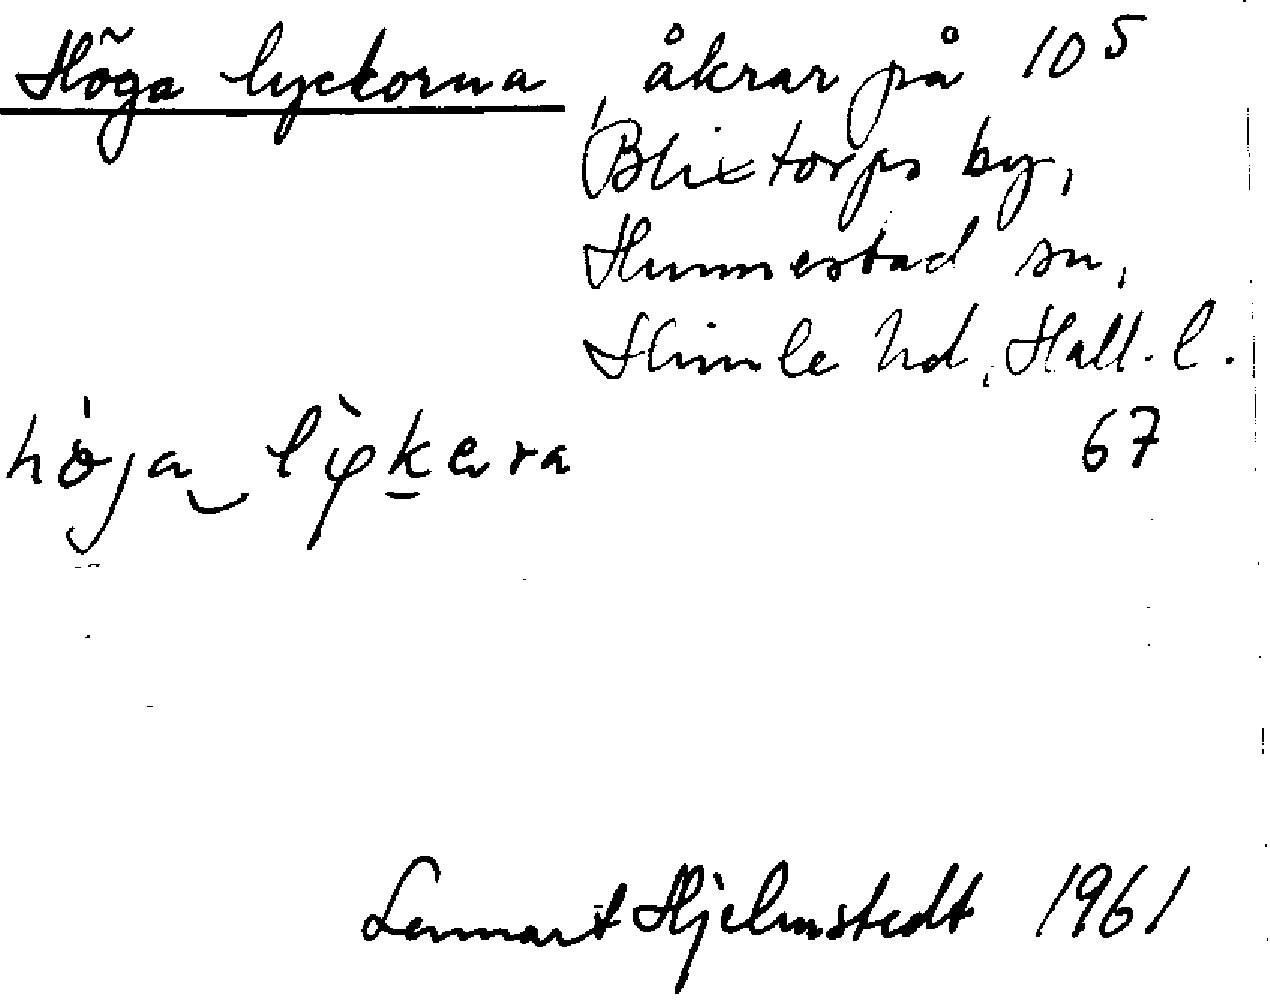 Höga lyckorna, åkrar på 10⁵
Blixtorps by,
Hunnestad sn,
Himle hd, Hall. l.
67
Lennart Hjelmstedt 1961